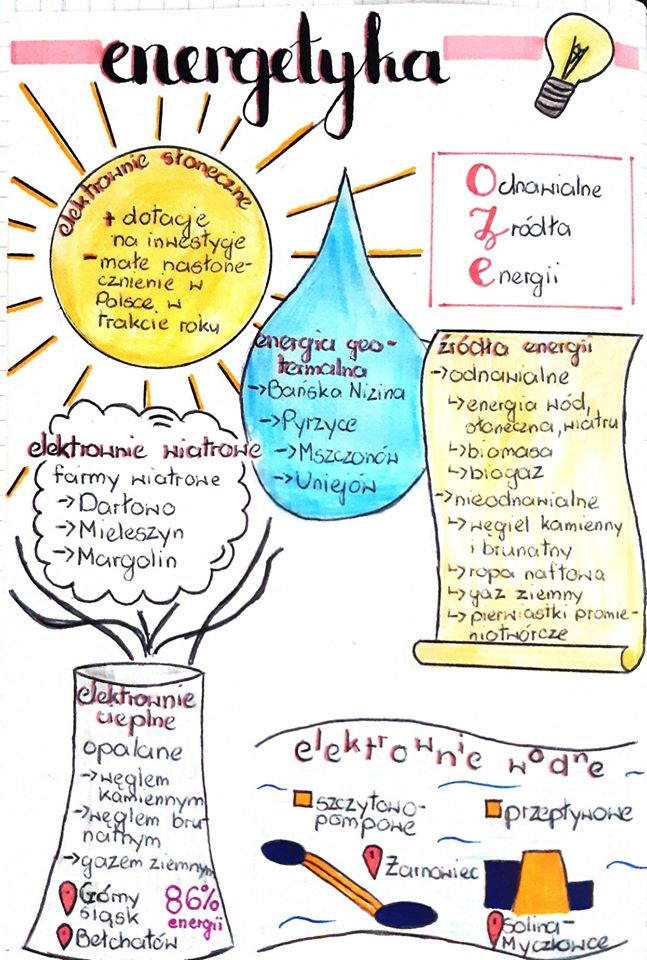 energetyka
elektrownie słoneczne
+ dotacje
na inwestycje
- małe nasłone-
cznienie w
Polsce w
trakcie roku
Odnawialne
Źródła
energii
energia geo-
termalna
→Bańska Nizina
→Pyrzyce
→Mszczonów
→Uniejów
źródła energii
→odnawialne
↳energia wód,
słoneczna, wiatru
↳biomasa
↳biogaz
→nieodnawialne
↳węgiel kamienny
i brunatny
↳ropa naftowa
↳gaz ziemny
↳pierwiastki promie-
niotwórcze
elektrownie wiatrowe
farmy wiatrowe
→Darłowo
→Mieleszyn
→Margolin
elektrownie
cieplne
opalane
→węglem
kamiennym
→węglem bru-
natnym
→gazem ziemnym
Górny
śląsk
Bełchatów
86%
energii
elektrownie wodne
szczytowo-
pompowe
Żarnowiec
przepływowe
Solina-
Myczkowce